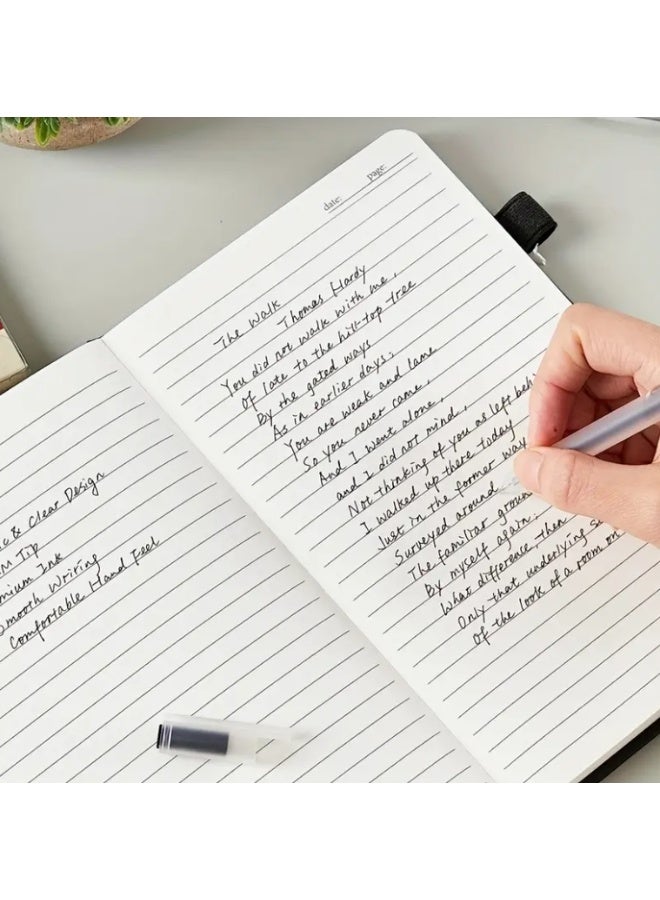 & Clear Design
Tip
Ink
Smooth Writing
Comfortable Hand Feel
date: page:
The Walk
Thomas Hardy
You did not walk with me,
Of late to the hill-top tree
By the gated ways
As in earlier days;
You are weak and lame
So you never came,
And I went alone,
and I did not mind,
Not thinking of you as left
I walked up there today
Just in the former way
Surveyed around
The familiar
By myself again:
What difference, then
Only that underlying
Of the look of a room on